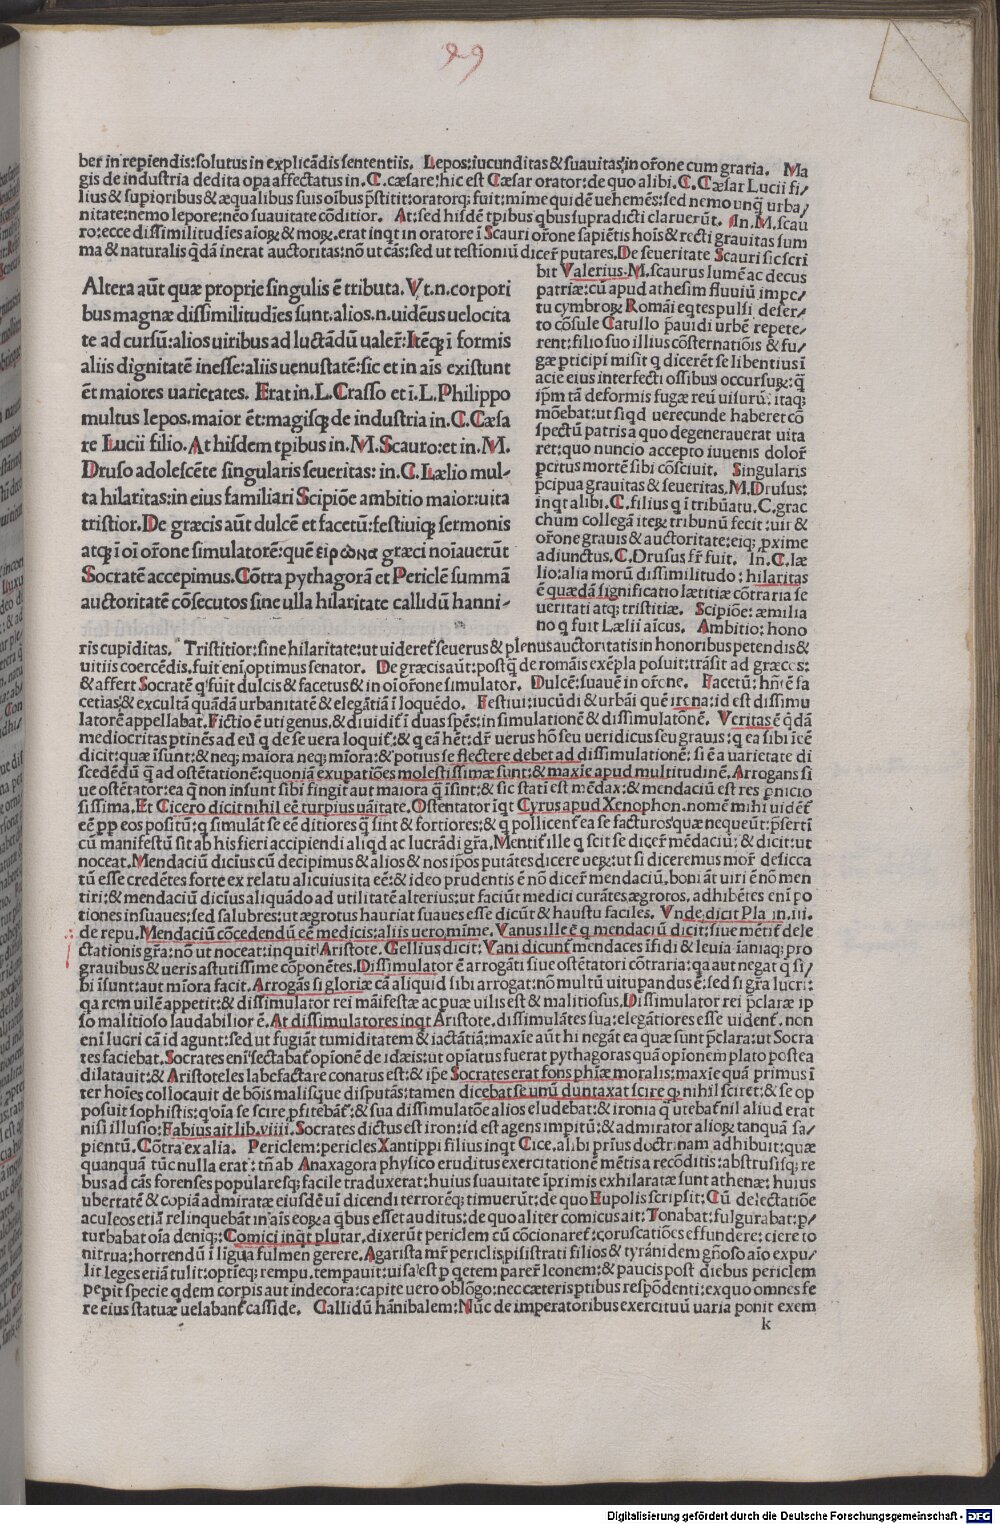 29
ber in repiendis:solutus in explicãdis sententiis. Lepos:iucunditas & suauitas,in or̃one cum gratia. Ma
gis de industria dedita opa affectatus in.C.cæsare:hic est Cæsar orator:de quo alibi.C.Cæsar Lucii fi/
lius & supioribus & æqualibus suis oĩbus p̃stitit:oratorq; fuit:mime quidẽ uehemẽs:sed nemo unq̃ urba/
nitate:nemo lepore:nẽo suauitate cõditior. At:sed hisdẽ tpibus qbus supradicti claruerũt. In.M.scau
ro:ecce dissimilitudĩes aĩoꝝ & moꝝ.erat inqt in oratore ĩ Scauri or̃one sapiẽtis hoĩs & recti grauitas sum
ma & naturalis q̃dã inerat auctoritas:nõ ut cãs:sed ut testioniũ dicer̃ putares.De seueritate Scauri sic scri
bit Valerius.M.scaurus lumẽ ac decus
patriæ:cũ apud athesim fluuiũ impe/
tu cymbroꝝ Romãi eqtes pulsi deser/
to cõsule Catullo p̃auidi urbẽ repete/
rent:filio suo illius cõsternatiõis & fu/
gæ pticipi misit q̃ dicerẽt se libentius ĩ
acie eius interfecti ossibus occursuꝝ:q̃
ip̃m tã deformis fugæ reũ uisurũ:itaq;
mõebat:ut siqd uerecunde haberet cõ
spectũ patris a quo degenerauerat uita
ret:quo nuncio accepto iuuenis dolor̃
pcitus mortẽ sibi cõsciuit. Singularis
p̃cipua grauitas & seueritas.M.Drusus:
inqt alibi.C.filius q̃ ĩ tribũatu.C.grac
chum collegã iteꝝ tribunũ fecit:uir &
or̃one grauis & auctoritate:eiq; pxime
adiunctus.C.Drusus fr̃ fuit. In.C.læ
lio:alia morũ dissimilitudo:hilaritas
ẽ quædã significatio lætitiæ cõtraria se
ueritati atq; tristitiæ. Scipiõe:æmilia
no q fuit Lælii aĩcus. Ambitio:hono
Altera aũt quæ proprie singulis ẽ tributa.Vt.n.corpori
bus magnæ dissimilitudĩes sunt.alios.n.uidẽus uelocita
te ad cursũ:alios uiribus ad luctãdũ ualer̃:Itẽq; ĩ formis
aliis dignitatẽ inesse:aliis uenustatẽ:sic et in aĩs existunt
ẽt maiores uarietates. Erat in.L.Crasso et ĩ.L.Philippo
multus lepos.maior ẽt:magisq; de industria in.C.Cæsa
re Lucii filio.At hisdem tpibus in.M.Scauro:et in.M.
Druso adolescẽte singularis seueritas: in.C.Lælio mul/
ta hilaritas:in eius familiari Scipiõe ambitio maior:uita
tristior.De græcis aũt dulcẽ et facetũ:festiuiq; sermonis
atq; ĩ oĩ or̃one simulatorẽ:quẽ ειρωνα græci noĩauerũt
Socratẽ accepimus.Cõtra pythagorã et Periclẽ summã
auctoritatẽ cõsecutos sine ulla hilaritate callidũ hanni/
ris cupiditas. Tristitior:sine hilaritate:ut uideret̃ seuerus & plenus auctoritatis in honoribus petendis &
uitiis coercẽdis.fuit enĩ optimus senator. De græcis aũt:postq̃ de romãis exẽpla posuit:trãsit ad græcos:
& affert Socratẽ q fuit dulcis & facetus & in oĩ or̃one simulator. Dulcẽ:suauẽ in or̃one. Facetũ:hñtẽ fa
cetias & excultã quãdã urbanitatẽ & elegãtiã ĩ loquẽdo. Festiui:iucũdi & urbãi quẽ irena:id est dissimu
latorẽ appellabat.Fictio ẽ uti genus.& diuidit̃ ĩ duas sp̃es:in simulationẽ & dissimulatõnẽ. Veritas ẽ q̃dã
mediocritas ptinẽs ad eũ q de se uera loquit̃:& q eã hẽt:dr̃ uerus hõ seu ueridicus seu grauis:q ea sibi ĩcẽ
dicit:quæ ĩsunt:& neq; maiora neq; mĩora:& potius se flectere debet ad dissimulationẽ:si ẽ a uarietate di
scedẽdũ q̃ ad ostẽtationẽ:quoniã exupatiões molestissimæ sunt:& maxĩe apud multitudinẽ.Arrogans si
ue ostẽtator:ea q̃ non insunt sibi fingit aut maiora q̃ ĩsint:& sic stati est mẽdax:& mendaciũ est res pnicio
sissima.Et Cicero dicit nihil eẽ turpius uãitate.Ostentator ĩqt Cyrus apud Xenophon.nomẽ mihi uidet̃
eẽ pp eos positũ:q simulãt se eẽ ditiores q̃ sint & fortiores:& q pollicent̃ ea se facturos quæ nequeũt:p̃serti
cũ manifestũ sit ab his fieri accipiendi aliqd ac lucrãdi gr̃a.Mentit̃ ille q scit se dicer̃ mẽdaciũ:& dicit:ut
noceat.Mendaciũ dicĩus cũ decipimus & alios & nosip̃os putãtes dicere ueꝝ:ut si diceremus mor̃ desicca
tũ esse credẽtes forte ex relatu alicuius ita eẽ:& ideo prudentis ẽ nõ dicer̃ mendaciũ.boni aũt uiri ẽ nõ men
tiri:& mendaciũ dicĩus aliquãdo ad utilitatẽ alterius:ut faciũt medici curãtes ægrotos.adhibẽtes enĩ po
tiones insuaues:sed salubres:ut ægrotus hauriat suaues esse dicũt & haustu faciles. Vnde dicit Pla in.iii.
de repu.Mendaciũ cõcedendũ eẽ medicis:aliis uero mime.Vanus ille ẽ q mendaciũ dicit:siue mẽtit̃ dele
ctationis gr̃a:nõ ut noceat:inquit Aristote.Gellius dicit:Vani dicunt̃ mendaces ĩfidi & leuia ĩaniaq; pro
grauibus & ueris astutissime cõponẽtes.Dissimulator ẽ arrogãti siue ostẽtatori cõtraria:qa aut negat q̃ si/
bi ĩsunt:aut mĩora facit.Arrogãs si gloriæ cã aliquid sibi arrogat:nõ multũ uitupandus ẽ:sed si gr̃a lucri:
qa rem uilẽ appetit:& dissimulator rei mãifestæ ac puæ uilis est & malitiosus.Dissimulator rei p̃claræ ip
so malitioso laudabilior ẽ.At dissimulatores inqt Aristote.dissimulãtes sua:elegãtiores esse uident̃.non
enĩ lucri cã id agunt:sed ut fugiãt tumiditatem & iactãtiã:maxĩe aũt hi negãt ea quæ sunt p̃clara:ut Socra
tes faciebat.Socrates enĩ sectabat̃ opionẽ de idæis:ut opiatus fuerat pythagoras quã opionem plato postea
dilatauit:& Aristoteles labefactare conatus est:& ip̃e Socrates erat fons phĩæ moralis:maxĩe quã primus ĩ
ter hoĩes collocauit de bõis malisque disputãs:tamen dicebat se unũ duntaxat scire q nihil sciret:& se op
posuit sophistis:q oĩa se scire pfitebãt̃:& sua dissimulatõe alios eludebat:& ironia q̃ utebat̃ nil aliud erat
nisi illusio:Fabius ait lib.viiii.Socrates dictus est iron:id est agens impitũ:& admirator alioꝝ tanquã sa/
pientũ.Cõtra ex alia. Periclem:pericles Xantippi filius inqt Cice.alibi prĩus doctrinam adhibuit:quæ
quanquã tũc nulla erat:tñ ab Anaxagora physico eruditus exercitationẽ mẽtis a recõditis:abstrusisq; re
bus ad cãs forenses popularesq; facile traduxerat:huius suauitate ĩprimis exhilaratæ sunt athenæ:huius
ubertatẽ & copiã admiratæ eiusdẽ uĩ dicendi terrorẽq; timuerũt:de quo Eupolis scripsit:Cũ delectatiõe
aculeos etiã relinquebãt in aĩs eoꝝ a qbus esset auditus:de quo aliter comicus ait:Tonabat:fulgurabat:p/
turbabat oĩa deniq;:Comici inqt plutar.dixerũt periclem cũ cõcionaret̃:coruscatiões effundere:ciere to
nitrua:horrendũ ĩ ligua fulmen gerere.Agarista mr̃ periclis:pisistrati filios & tyrãnidem gñoso aĩo expu/
lit leges etiã tulit:optĩeq; rempu.tempauit:uisa est p qetem parer̃ leonem:& paucis post diebus periclem
pepit specie qdem corpis aut indecora:capite uero oblõgo:nec cæteris ptibus respõdenti:ex quo omnes fe
re eius statuæ uelabant̃ casside. Callidũ hãnibalem:Nũc de imperatoribus exercituũ uaria ponit exem
k
Digitalisierung gefördert durch die Deutsche Forschungsgemeinschaft - DFG